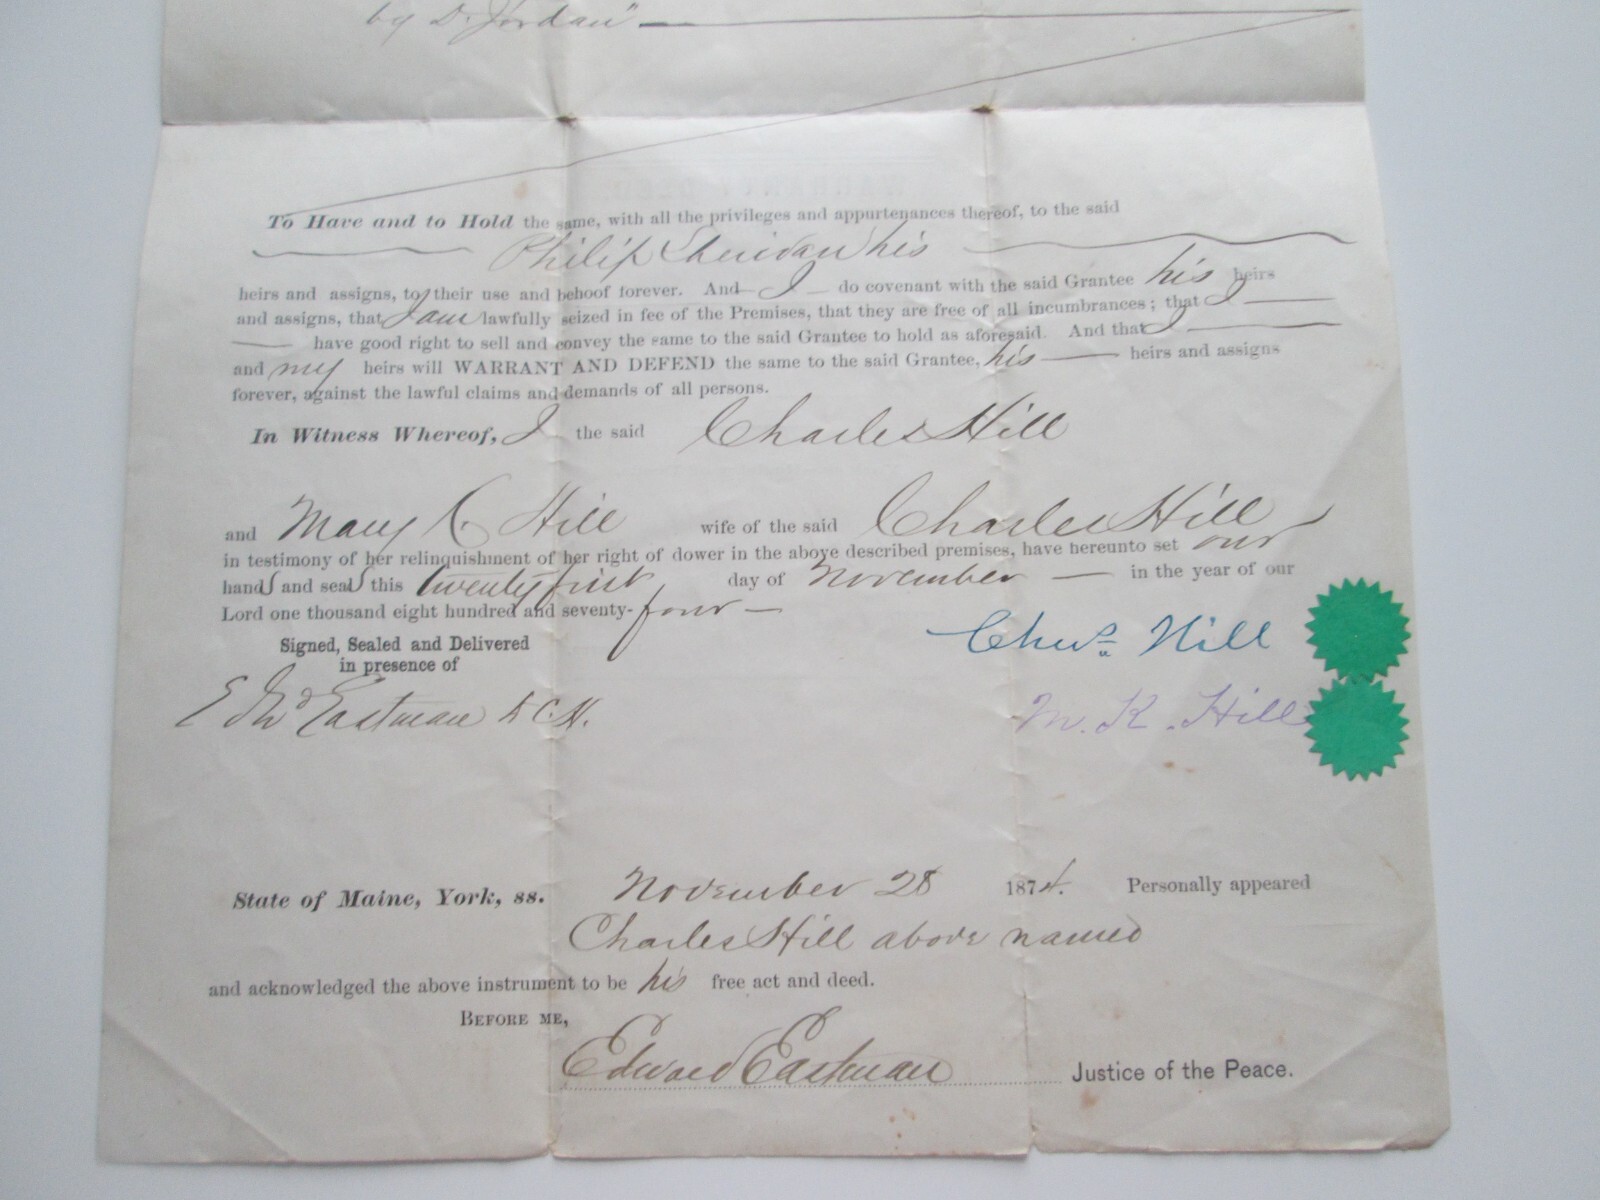 by D. Jordan"
To Have and to Hold the same, with all the privileges and appurtenances thereof, to the said
Philip Sheridan his
heirs and assigns, to their use and behoof forever. And I do covenant with the said Grantee his heirs
and assigns, that I am lawfully seized in fee of the Premises, that they are free of all incumbrances; that I
have good right to sell and convey the same to the said Grantee to hold as aforesaid. And that I
and my heirs will WARRANT AND DEFEND the same to the said Grantee, his heirs and assigns
forever, against the lawful claims and demands of all persons.
In Witness Whereof, I the said Charles Hill
and Mary C. Hill wife of the said Charles Hill
in testimony of her relinquishment of her right of dower in the above described premises, have hereunto set our
hands and seals this twenty first day of November in the year of our
Lord one thousand eight hundred and seventy-four
Signed, Sealed and Delivered
in presence of
Chas Hill
Eastman
M. K. Hill
State of Maine, York, ss. November 28 1874. Personally appeared
Charles Hill above named
and acknowledged the above instrument to be his free act and deed.
BEFORE ME,
Edward Eastman Justice of the Peace.